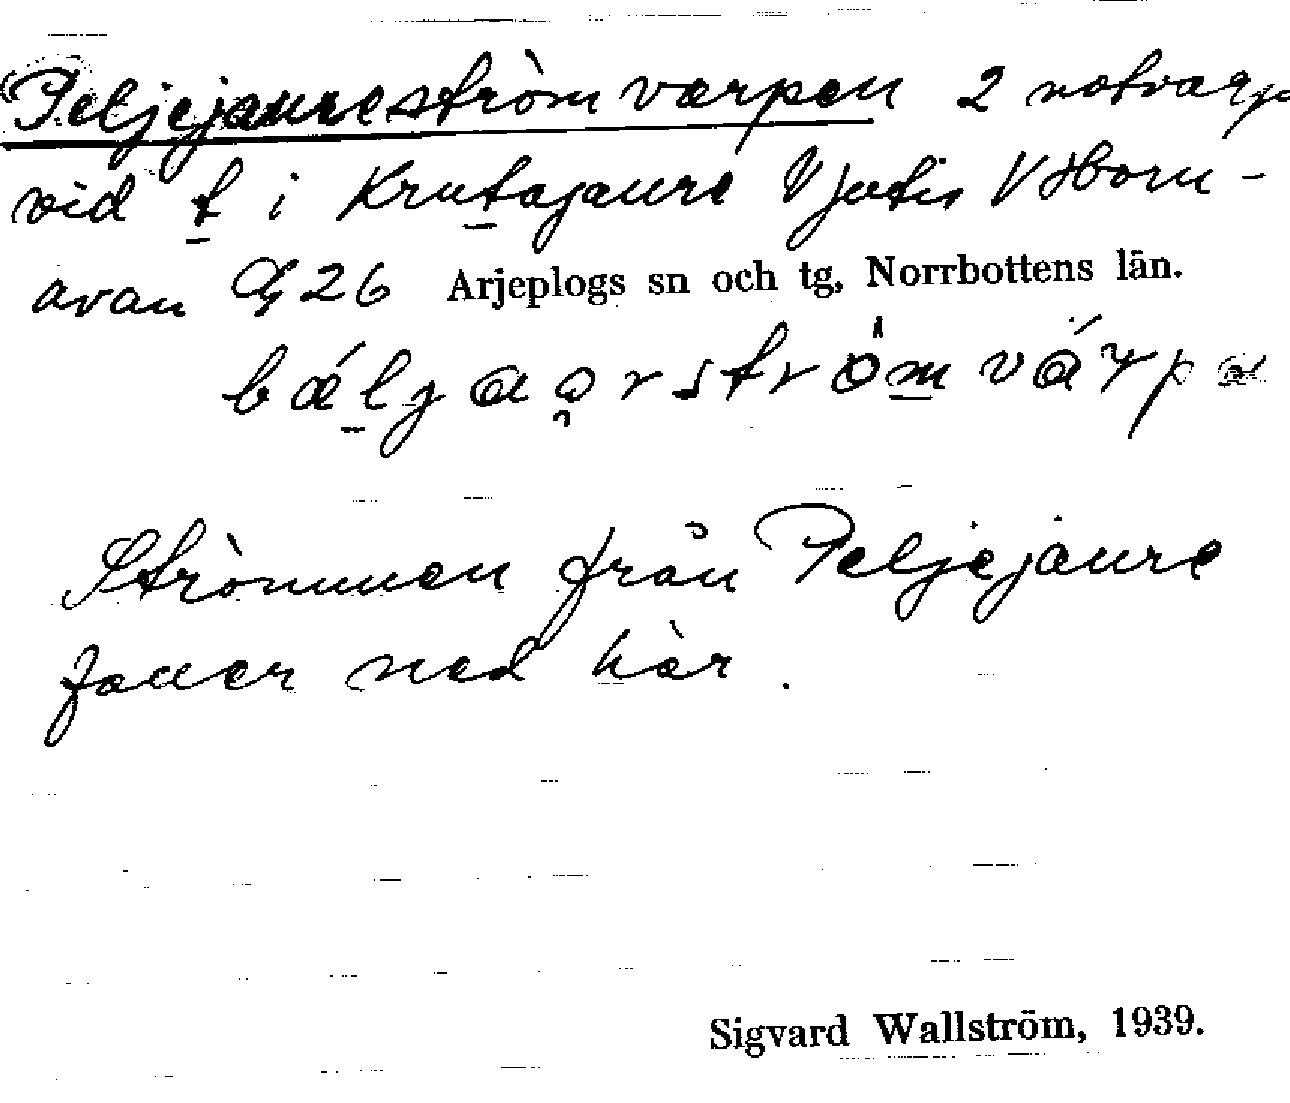 Peljejaureströmvarpen 2 notvarp
vid t i Krutajaure V Jutis V Horn-
avan G 26 Arjeplogs sn och tg, Norrbottens län.
Strömmen från Peljejaure
faller ned här.
Sigvard Wallström, 1939.